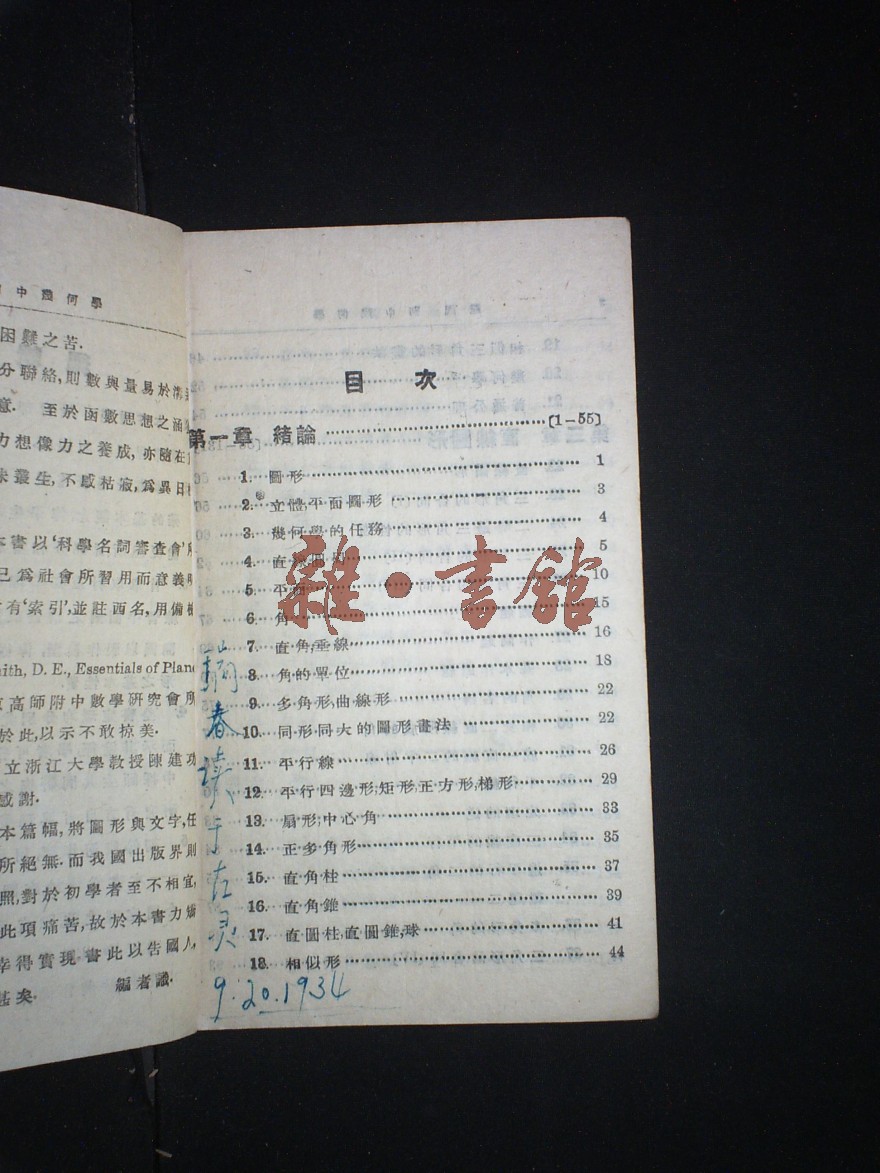 中幾何學
困難之苦.
分聯絡,則數與量易於溝
意. 至於函數思想之涵
力想像力之養成,亦隨在
味叢生,不感枯寂,爲異日
本書以‘科學名詞審查會’
已爲社會所習用而意義
有‘索引’,並註西名,用備檢
ith, D. E., Essentials of Plane
高師附中數學研究會所
於此,以示不敢掠美.
立浙江大學教授陳建功
感謝.
本篇幅,將圖形與文字,任
所絕無.而我國出版界則
照,對於初學者至不相宜,
此項痛苦,故於本書力矯
幸得實現.書此以告國人,
甚矣. 編者識.
目 次
第一章 緒論 [1—55]
1. 圖形 1
2. 立體平面圖形 3
3. 幾何學的任務 4
4. 直線 5
5. 平面 10
6. 角 15
7. 直角,垂線 16
8. 角的單位 18
9. 多角形,曲線形 22
10. 同形同大的圖形畫法 22
11. 平行線 26
12. 平行四邊形,矩形,正方形,梯形 29
13. 扇形,中心角 33
14. 正多角形 35
15. 直角柱 37
16. 直角錐 39
17. 直圓柱,直圓錐,球 41
18. 相似形 44
春讀于
9.20.1934
雜·書館